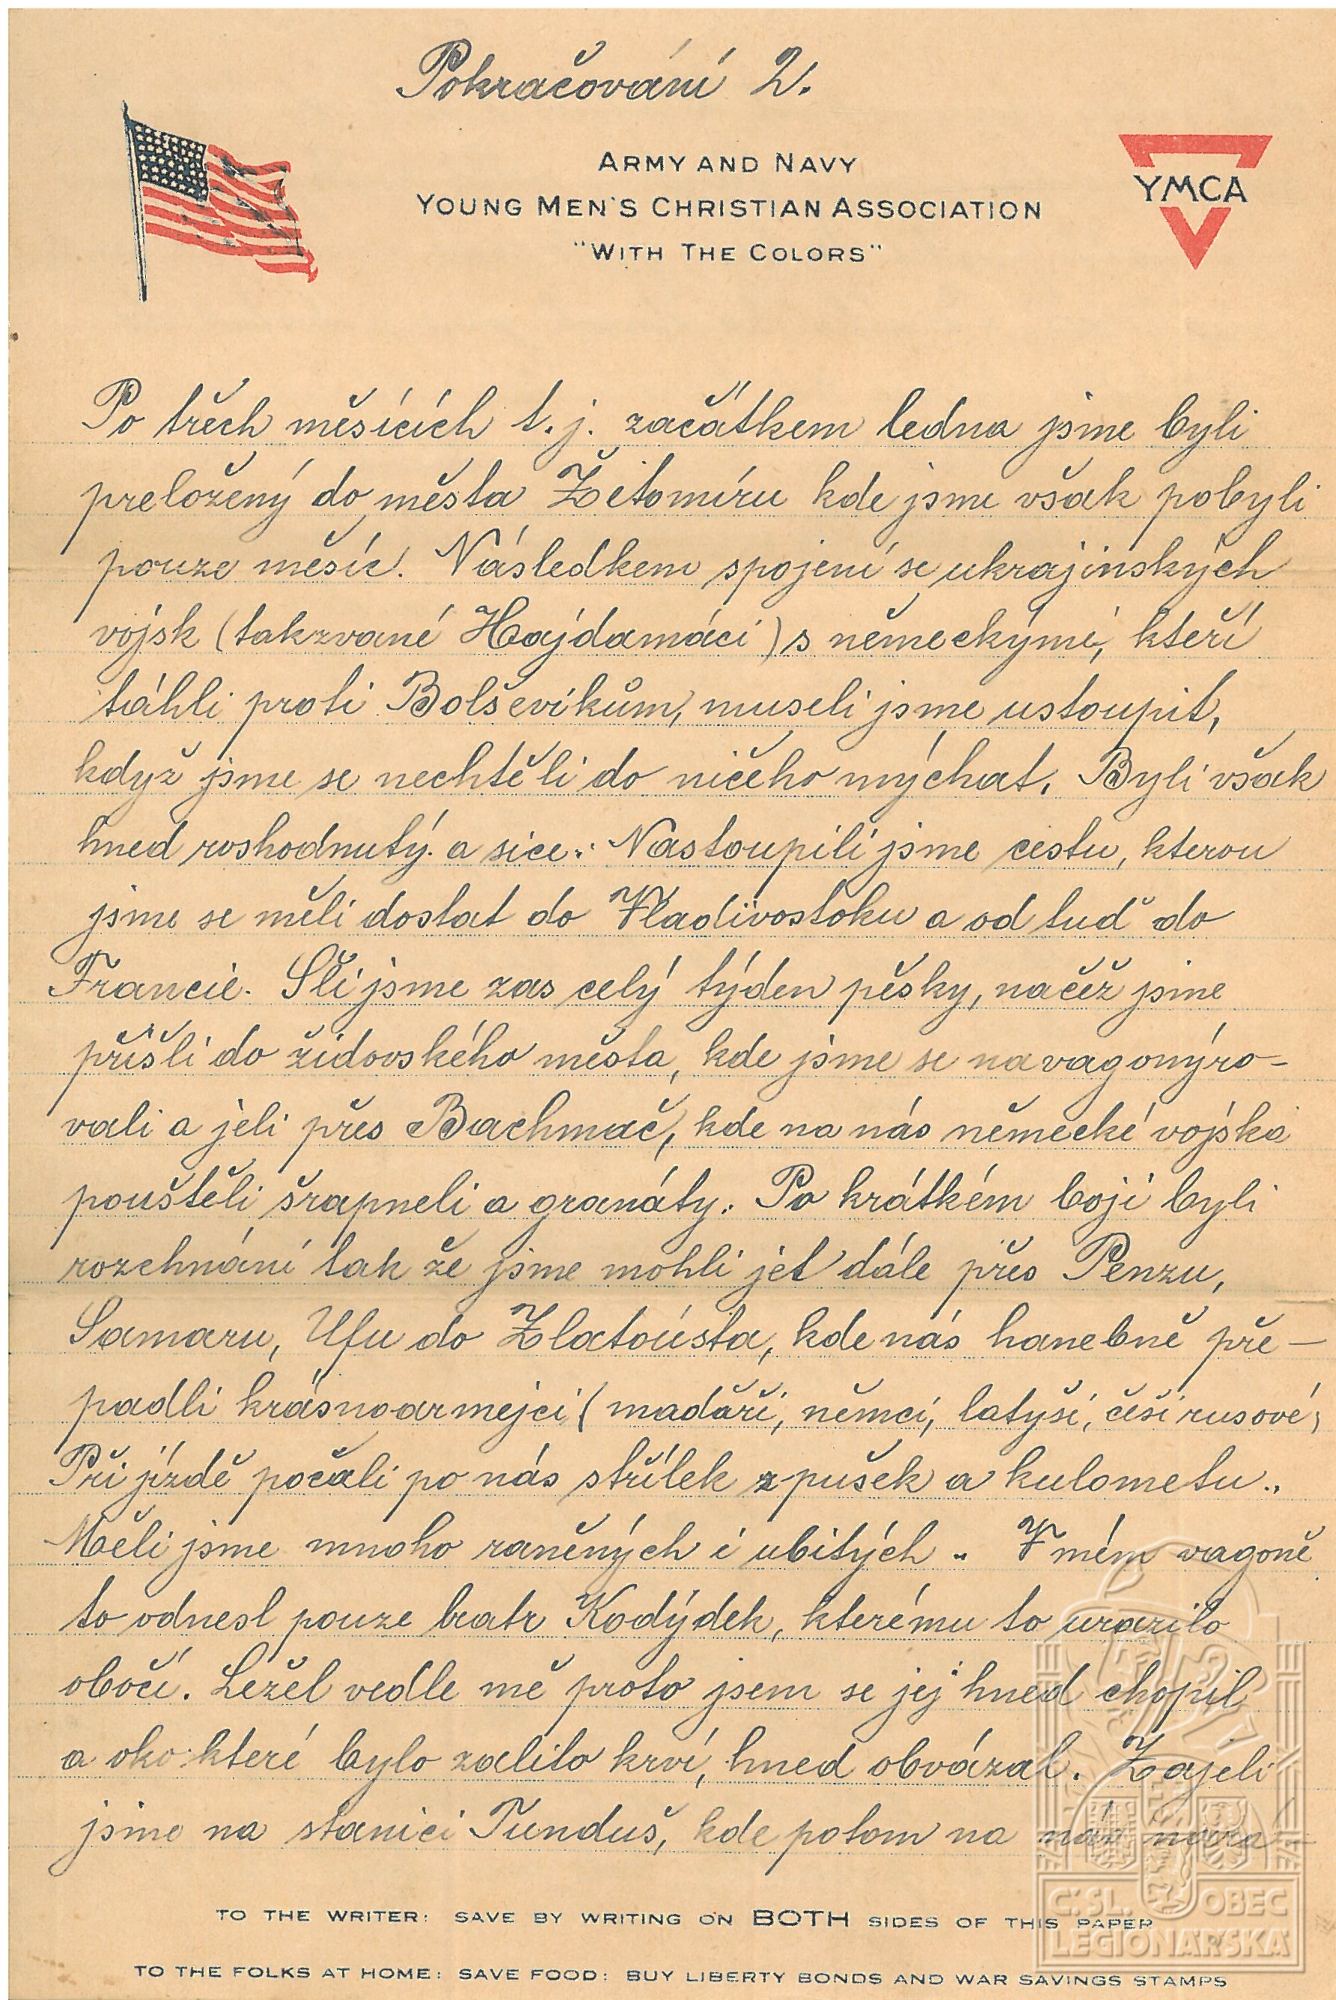 Pokračování 2.
ARMY AND NAVY
YOUNG MEN'S CHRISTIAN ASSOCIATION
"WITH THE COLORS"
YMCA
Po třech měsících t. j. začátkem ledna jsme byli
preložený do města Žitomíru kde jsme však pobyli
pouze měsíc. Následkem spojení se ukrajinských
vojsk (takzvané Hajdamáci) s německými, kteří
táhli proti Bolševikům, museli jsme ustoupit,
když jsme se nechtěli do ničeho mýchat. Byli však
hned roshodnutý a sice: Nastoupili jsme cestu, kterou
jsme se měli dostat do Vladivostoku a od tuď do
Francie. Šli jsme zas celý týden pěšky, načež jsme
přišli do židovského města, kde jsme se navagonýro-
vali a jeli přes Bachmač, kde na nás německé vojska
pouštěli šrapneli a granáty. Po krátkém boji byli
rozehnání tak že jsme mohli jet dále přes Penzu,
Samaru, Ufu do Zlatoústa, kde nás hanebně pře-
padli krásnoarmejci (madăři, němci, latyši, češi rusové)
Při jízdě počali po nás střílek z pušek a kulometu.
Měli jsme mnoho raněných i ubitých. V mém vagoně
to odnesl pouze bratr Kodýdek, kterému to urazilo
obočí. Ležel vedle mě proto jsem se jej hned chopil
a oko které bylo zalito krví, hned obvázal. Zajeli
jsme na stanici Tunduš, kde potom na nás
TO THE WRITER: SAVE BY WRITING ON BOTH SIDES OF THIS PAPER
TO THE FOLKS AT HOME: SAVE FOOD: BUY LIBERTY BONDS AND WAR SAVINGS STAMPS
ČSL. OBEC
LEGIONÁŘSKÁ